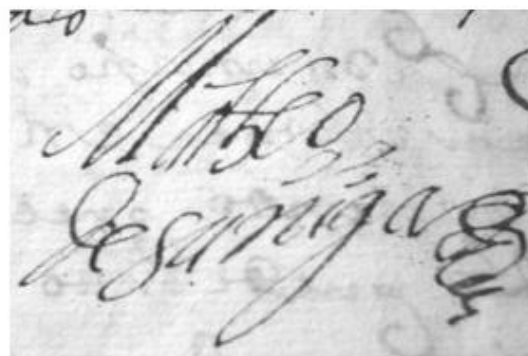 Matheo
de suniga